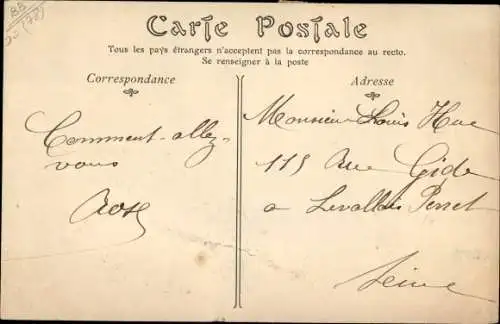 Carte Postale
Tous les pays étrangers n'acceptent pas la correspondance au recto.
Se renseigner à la poste
Correspondance
Comment-allez-
vous
Rose
Adresse
Monsieur Louis Hue
115 Rue Gide
a Levallois Perret
Seine